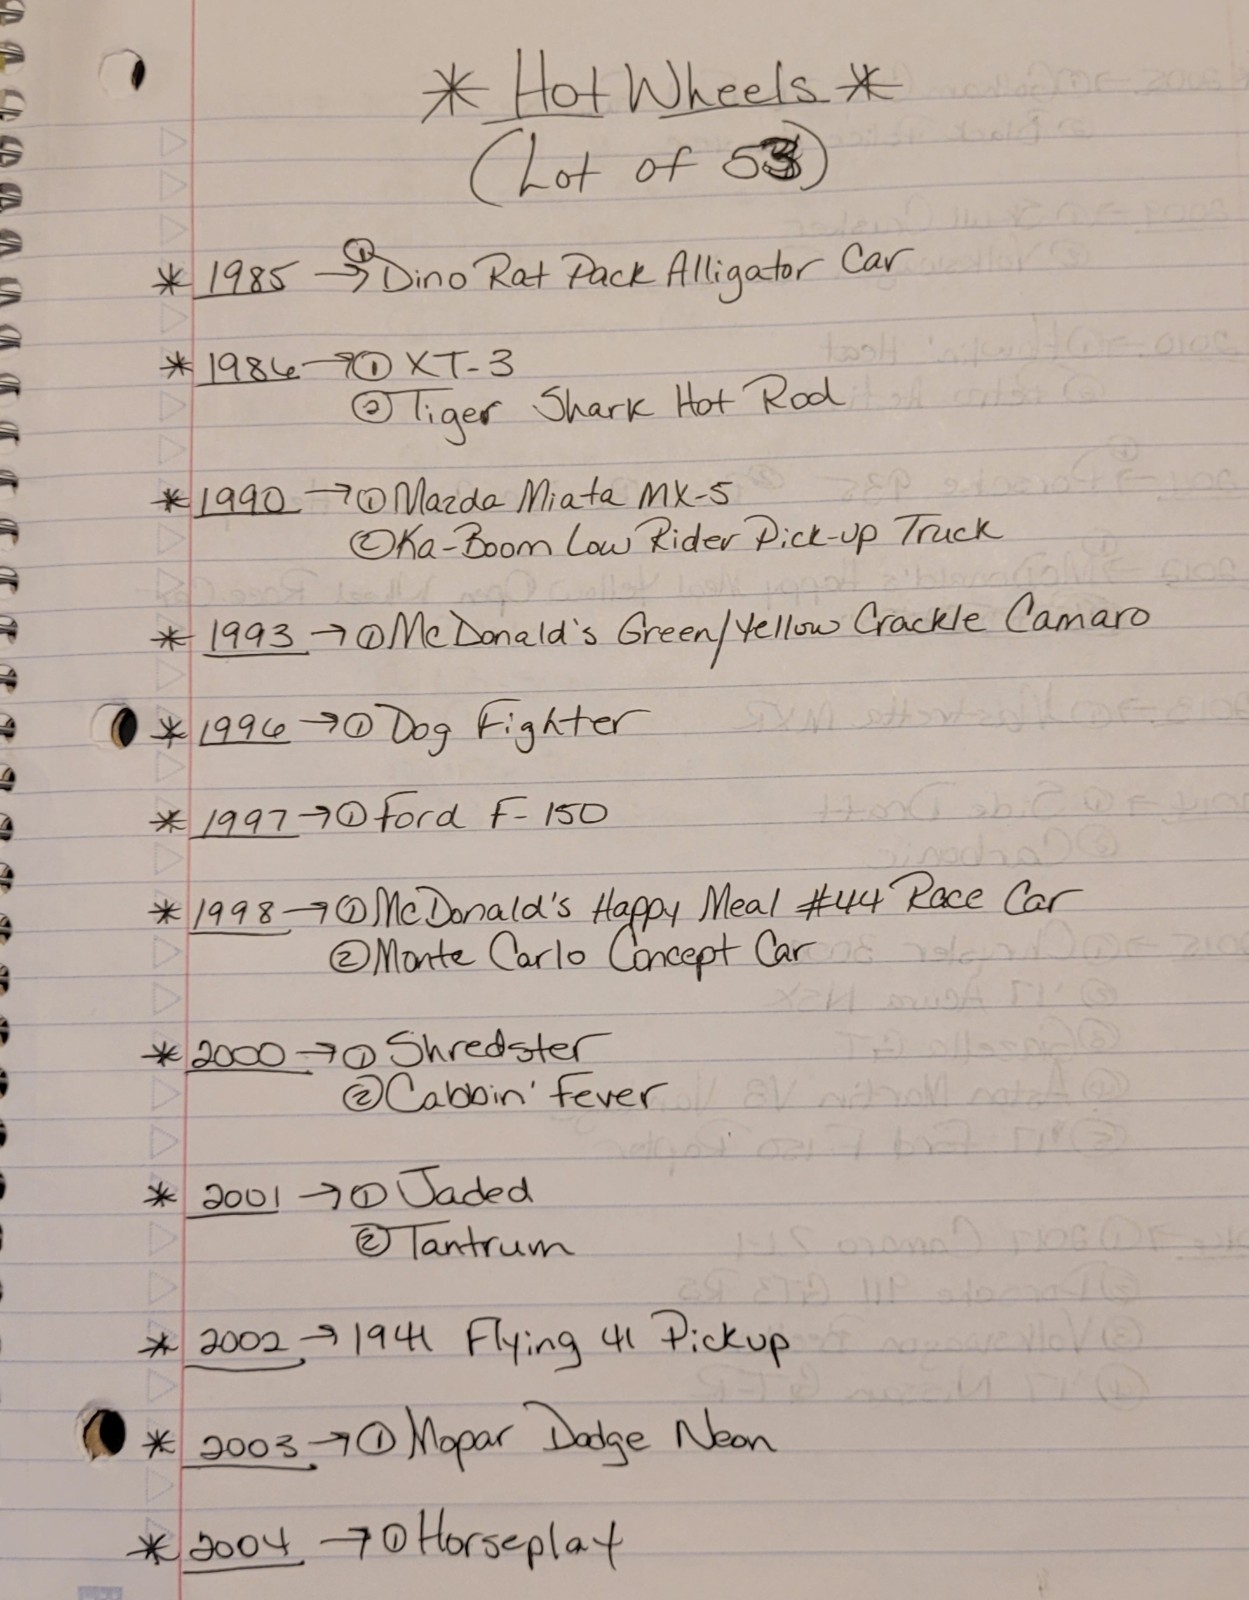 * Hot Wheels *
(Lot of 53)
* 1985 → ① Dino Rat Pack Alligator Car
* 1986 → ① XT-3
② Tiger Shark Hot Rod
* 1990 → ① Mazda Miata MX-5
② Ka-Boom Low Rider Pick-up Truck
* 1993 → ① McDonald's Green/Yellow Crackle Camaro
* 1996 → ① Dog Fighter
* 1997 → ① Ford F-150
* 1998 → ① McDonald's Happy Meal #44 Race Car
② Monte Carlo Concept Car
* 2000 → ① Shredster
② Cabbin' Fever
* 2001 → ① Jaded
② Tantrum
* 2002 → 1941 Flying 41 Pickup
* 2003 → ① Mopar Dodge Neon
* 2004 → ① Horseplay